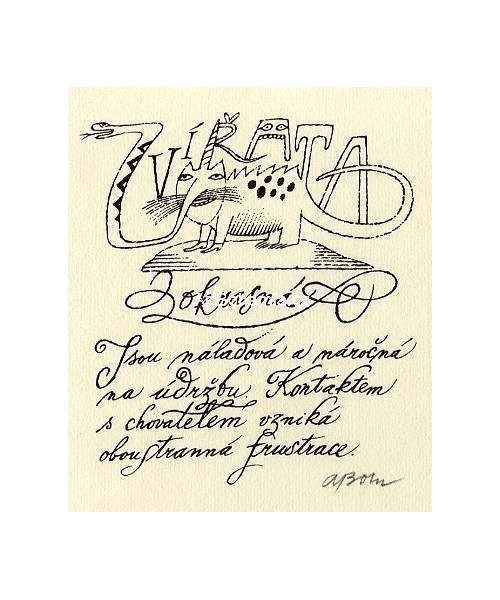 ZVÍŘATA
3 okrasná
Jsou náladová a náročná
na údržbu. Kontaktem
s chovatelem vzniká
oboustranná frustrace.
ABorn